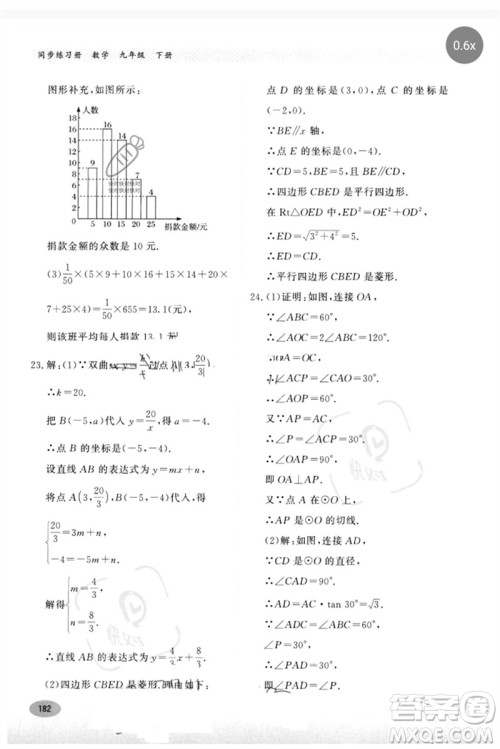 同步练习册 数学 九年级 下册
0.6x
图形补充,如图所示:
人数
18
16
14
12
10
8
6
4
2
0
9
16
14
7
4
5 10 15 20 25
捐款金额/元
捐款金额的众数是 10 元.
(3)1/50×(5×9+10×16+15×14+20×
7+25×4)=1/50×655=13.1(元),
则该班平均每人捐款 13.1 元.
23.解:(1)∵双曲 点A(3,20/3)
∴k=20.
把 B(-5,a)代入 y=20/x,得 a=-4.
∴点 B 的坐标是(-5,-4).
设直线 AB 的表达式为 y=mx+n,
将点 A(3,20/3),B(-5,-4)代入,得
{20/3=3m+n,
-4=-5m+n,
解得{m=4/3,
n=8/3.
∴直线 AB 的表达式为 y=4/3x+8/3.
(2)四边形 CBED 是菱形.理由如下:
182
点 D 的坐标是(0,4),点 C 的坐标是
(-2,0).
∵BE∥x 轴,
∴点 E 的坐标是(0,-4).
∵CD=5,BE=5,且 BE∥CD,
∴四边形 CBED 是平行四边形.
在 Rt△OED 中,ED²=OE²+OD²,
∴ED=√3²+4²=5.
∴ED=CD.
∴平行四边形 CBED 是菱形.
24.(1)证明:如图,连接 OA,
∵∠ABC=60°,
∴∠AOC=120°.
∴∠AOP=60°.
∵∠ABC=60°,
∠ACP=30°,
∴∠OAC=30°.
又∵AP=AC,
∴∠P=30°.
又∵∠AOP=60°,
∴∠OAP=90°,
即 OA⊥AP.
∴AP 是⊙O 的切线.
(2)解:如图,连接 AD.
∵CD 是⊙O 的直径,
∴∠CAD=90°.
∴AD=AC·tan 30°=√3.
∵∠ADC=∠ABC=60°,
∴∠PAD=∠ADC-∠P=30°.
∴∠P=∠PAD.
即 PD=AD=√3.
作业帮
MXQE.COM